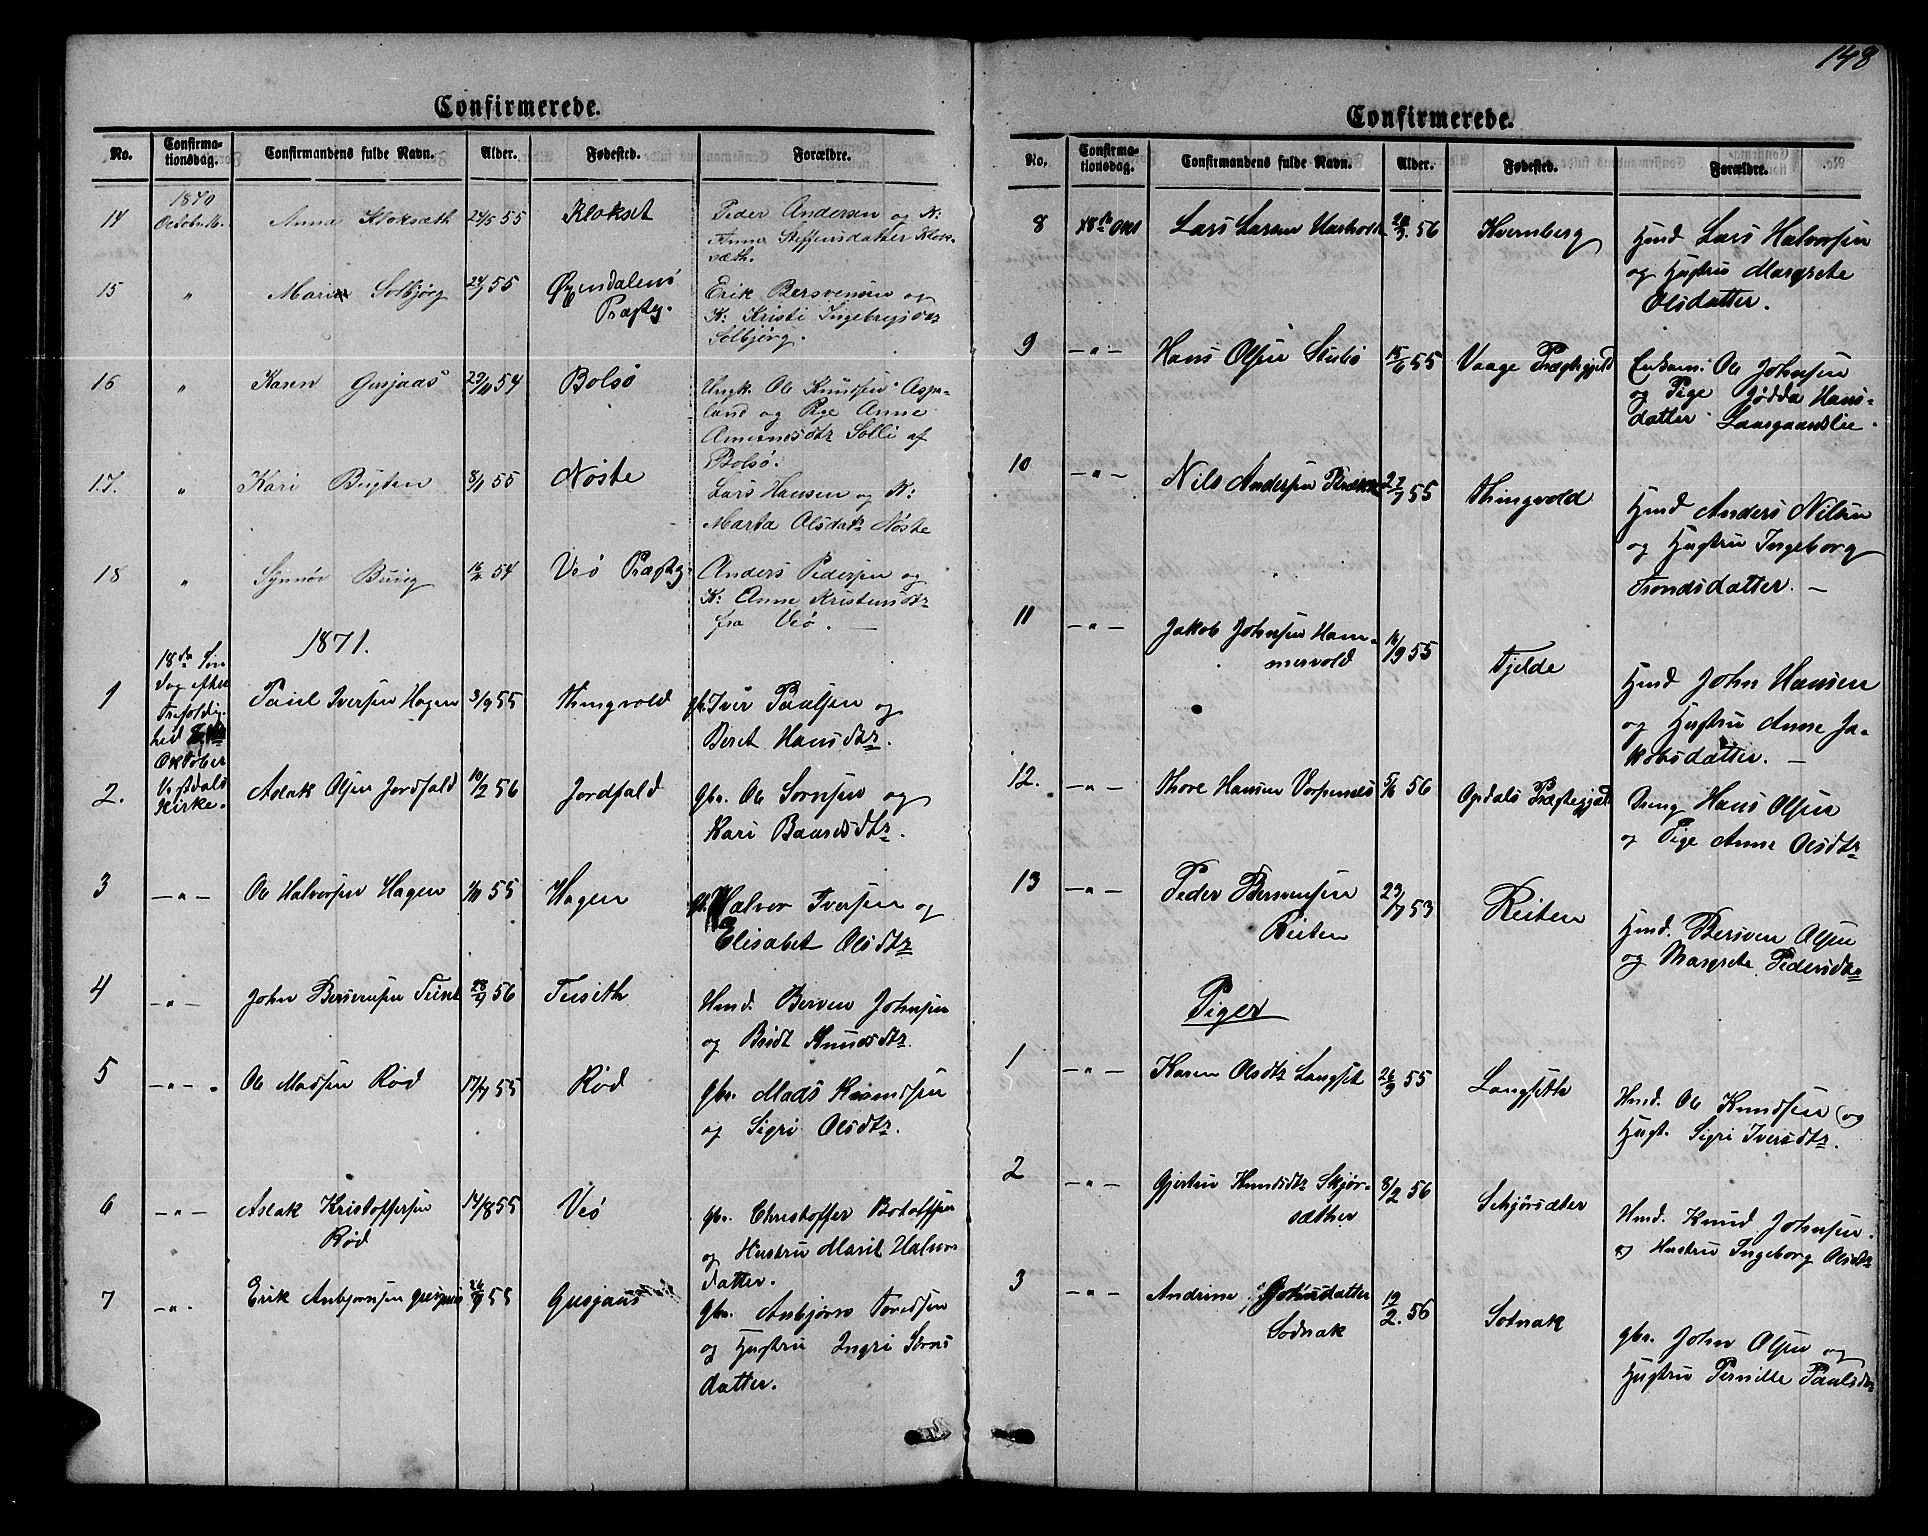 148
Confirmerede.
No. Confirma-tionsdag. Confirmandens fulde Navn. Alder. Fødested. Forældre.
1870
14 October Anna Kloksæth 24/5 55 Klokset Peder Andersen og K:
Anne Steffensdatter Klok-
sæth.
15 " Solbjørg 24/7 55 Øxendalens
Præstg. Erik Bersvensen og
K: Kristi Ingebrigsdtr
Solbjørg.
16 " Karen Gusjaas 29/11 54 Bolsø Ungk. Ole Knudsen Aspe-
lund og Pige Anne
Solli af
Bolsø.
17. " Kari Bugten 8/1 55 Nöste Lars Hansen og K:
Marta Olsdatr Nöste
18 " Synnøv 54 Veö Præstg. Anders Pedersen og
K: Anne Kristensdtr
fra Veö. —
1871.
18de Søn
dag efter
Trefoldig-
hed 8de
Oktober
Vestdals
Kirke.
1 Paul Iversen Hagen 3/9 55 Thingvold gbr. Iver Paulsen og
Beret Hansdtr.
2. Aslak Olsen Jordfald 10/2 56 Jordfald gbr. Ole Sørnsen og
Kari Baardsdtr.
3 — " — Ole Halvorsen Hagen 55 Hagen gbr. Halvor Iversen og
Elisabet Olsdtr
4 — " — John Bersvensen 56 Tuseth Hmd. Berven Johnsen
og Bridt Knudsdtr.
5 — " — Ole Madsen Röd 17/7 55 Röd gbr. Mads
og Sigri Olsdtr.
6 — " — Aslak Kristoffersen
Röd 14/8 55 Veö gbr. Christoffer Botolfsen
og Hustru Marit Halvors
datter.
7 — " — Erik Anbjørnsen Gusjaas 26/9 55 Gusjaas gbr. Anbjørn
og Hustru Ingri Sørns
datter.
Confirmerede.
No. Confirma-tionsdag. Confirmandens fulde Navn. Alder. Fødested. Forældre.
8 8de Okt Lars Larsen 56 Kvernberg Hmd Lars Halvorsen
og Hustru Margrete
Olsdatter.
9 — " — Hans Olsen Stubö 15/6 55 Vaage Præstegjeld Ole Johnsen
og Pige Jödda Hans-
datter
10 — " — Nils Andersen 27/7 55 Thingvold Hmd Anders Nilsen
og Hustru Ingeborg
Tronsdatter. —
11 — " — Jakob Johnsen Ham-
mervold 16/9 55 Fjelde Hmd John Hansen
og Hustru Anne Ja-
kobsdatter. —
12. — " — Thore Hansen 56 Opdals Præstegjeld Dreng Hans Olsen
og Pige Anne Olsdtr
13 — " — Peder Bersvensen
Reiten 23/7 53 Reiten Hmd. Bersven Olsen
og Margrete Pedersdtr
Piger
1 — " — Karen Olsdtr Langset 26/9 55 Langseth Hmd. Ole Knudsen og
Hust. Sigri Iversdtr.
2 — " — Gjertru Knudsdtr Skjør-
sæther 8/2 56 Schjørsæter Hmd. Knud Johnsen
og Hustru Ingeborg Olsdtr
3 — " — Andrine Johnsdatter
Sodnak 19/2. 56 Sotnak gbr. John Olsen og
Hustru Pernille Paulsdtr